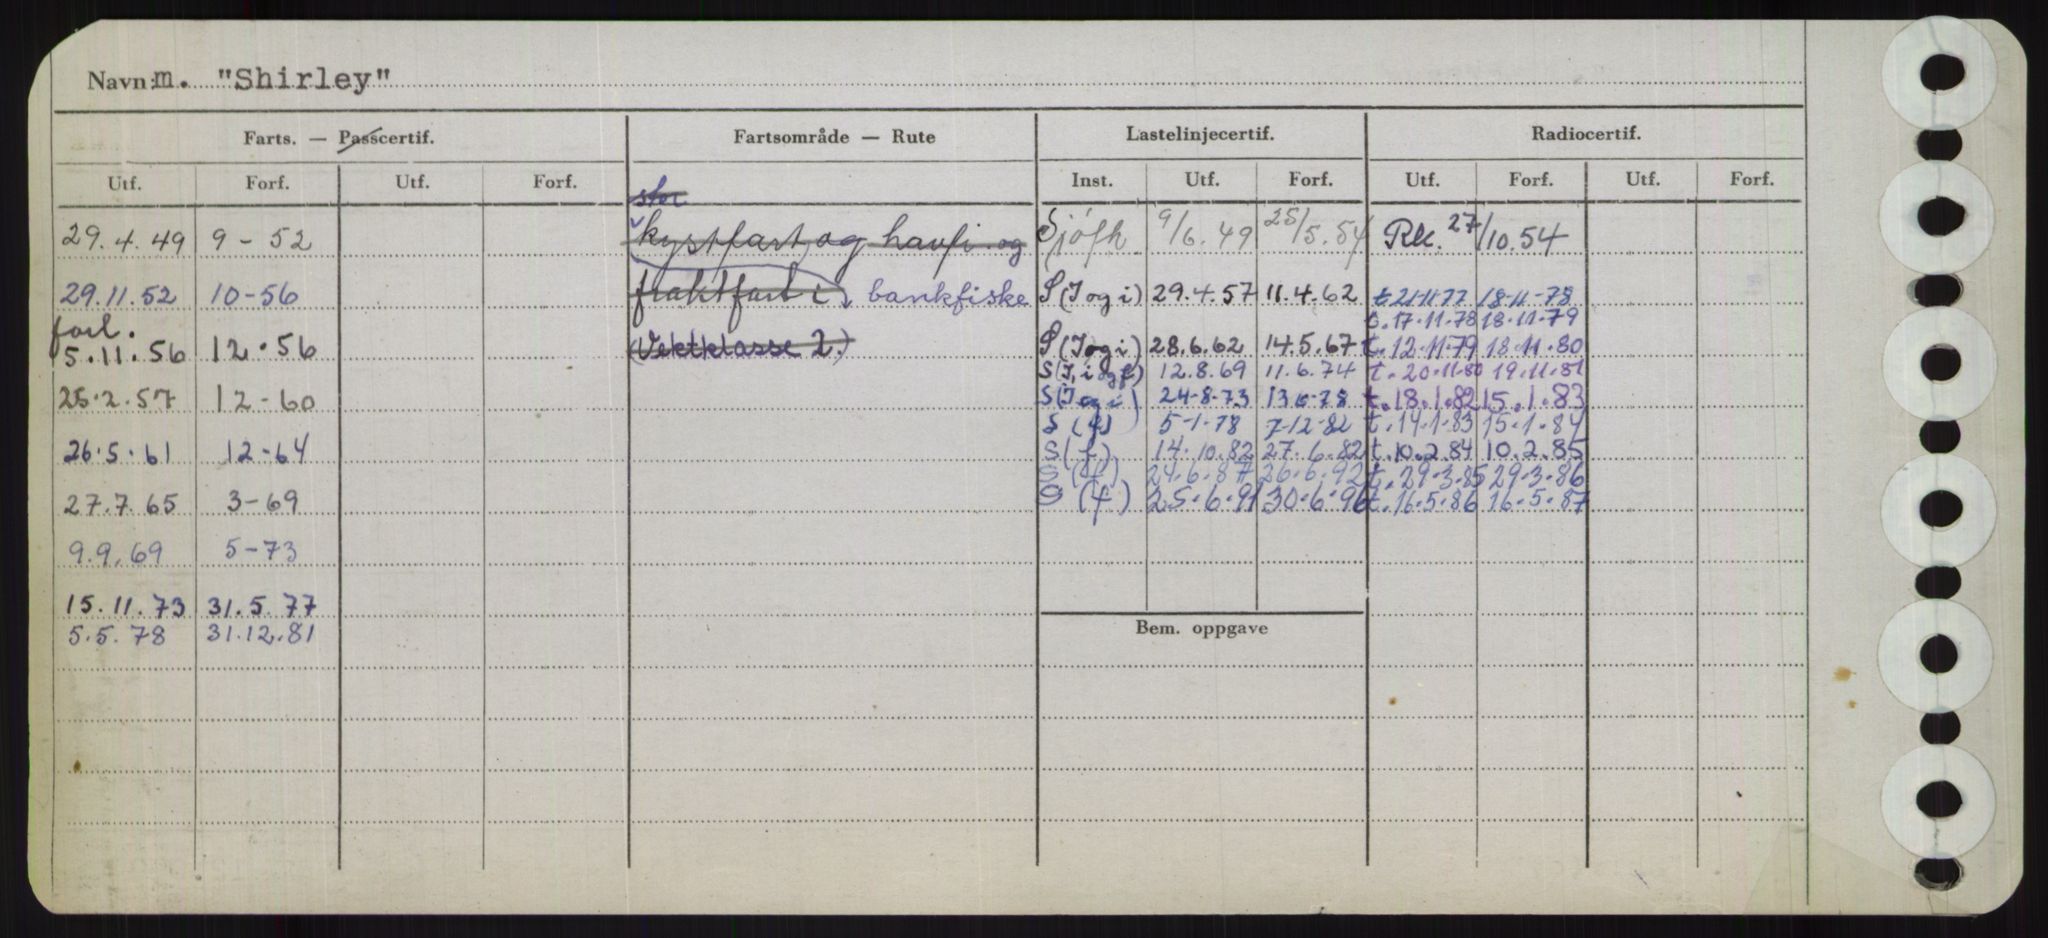 Navn: m. "Shirley"
Farts. — Passcertif. Fartsområde — Rute Lastelinjecertif. Radiocertif.
Utf. Forf. Utf. Forf. Inst. Utf. Forf. Utf. Forf. Utf. Forf.
stor
29.4.49 9-52 kystfart og havfi. og Sjöfk 9/6.49 25/5.54 Rk. 27/10.54
29.11.52 10-56 fraktfart i), bankfiske S (I og i) 29.4.57 11.4.62 t. 21-11-77 18-11-78
t. 17-11-78 18-11-79
forl.
5.11.56 12.56 (Vektklasse 2.) S (I og i) 28.6.62 14.5.67 t. 12-11-79 18-11-80
S (I, i og f) 12.8.69 11.6.74 t. 20-11-80 19.11.81
25.2.57 12-60 S (I og i) 24-8-73 t. 18.1.82 15.1.83
S (f) 5-1-78 7-12-82 t. 14.1.83 15.1.84
26.5.61 12-64 S (f) 14.10.82 27.6.82 t. 10.2.84 10.2.85
S (f) 24.6.87 26.6.92 t. 29.3.85 29.3.86
27.7.65 3-69 S (f) 25.6.91 30.6.96 t. 16.5.86 16.5.87
9.9.69 5-73
15.11.73 31.5.77
5.5.78 31.12.81
Bem. oppgave